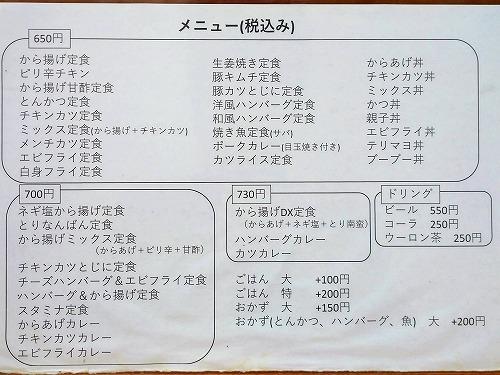 メニュー(税込み)
650円
から揚げ定食
ピリ辛チキン
から揚げ甘酢定食
とんかつ定食
チキンカツ定食
ミックス定食(から揚げ+チキンカツ)
メンチカツ定食
エビフライ定食
白身フライ定食
生姜焼き定食
豚キムチ定食
豚カツとじに定食
洋風ハンバーグ定食
和風ハンバーグ定食
焼き魚定食(サバ)
ポークカレー(目玉焼き付き)
カツライス定食
からあげ丼
チキンカツ丼
ミックス丼
かつ丼
親子丼
エビフライ丼
テリマヨ丼
ブーブー丼
700円
ネギ塩から揚げ定食
とりなんばん定食
から揚げミックス定食
(からあげ+ピリ辛+甘酢)
チキンカツとじに定食
チーズハンバーグ&エビフライ定食
ハンバーグ&から揚げ定食
スタミナ定食
からあげカレー
チキンカツカレー
エビフライカレー
730円
から揚げDX定食
(からあげ+ネギ塩+とり南蛮)
ハンバーグカレー
カツカレー
ドリング
ビール 550円
コーラ 250円
ウーロン茶 250円
ごはん 大 +100円
ごはん 特 +200円
おかず 大 +150円
おかず(とんかつ、ハンバーグ、魚) 大 +200円